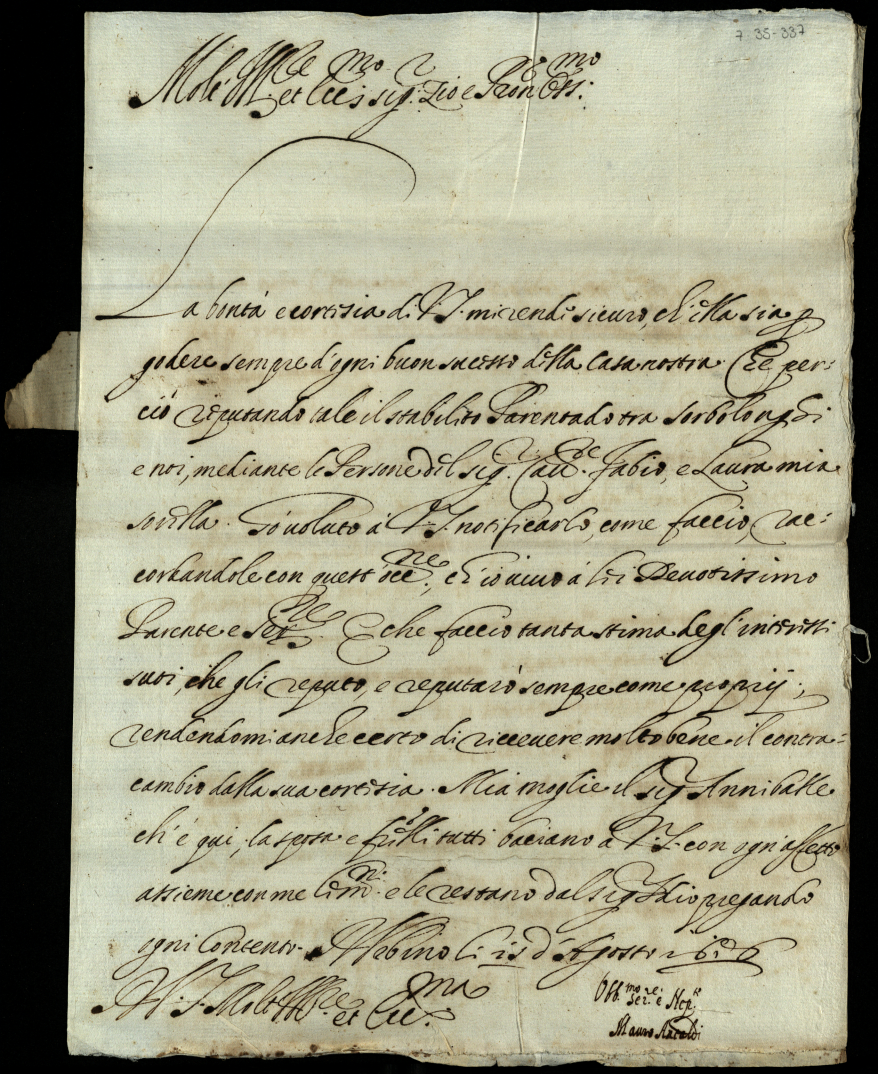 7-35-337
Molt' Ill.re et Ecc.mo sig.r Zio e Pron Oss.mo
La bontà e cortesia di V.S. mi rende sicuro, ch'ella sia p
godere sempre d'ogni buon sucesso della Casa nostra. Che per:
ciò reputando tale il stabilito Parentado tra Sorbolonghi
e noi, mediante le Persone del sig.r Cau.re Fabio, e Laura mia
sorella. Hò uoluto à V.S. notificarlo, come faccio, rac:
cordandole con quest' occ.ne, ch'io uiuo à lei Deuotissimo
Parente e Ser.re E che faccio tanta stima degl'interessi
suoi, che gli reputo, e reputarò sempre come proprij;
rendendomi anche certo di riceuere molto bene il contra:
cambio dalla sua cortesia. Mia moglie il sig.r Anniballe
ch'è qui, la sposa e frełli tutti baciano à V.S. con ogn'affetto
assieme con me le m.ni e le restano dal sig.r Idio pregando
ogni Contento. Urbino li 15 d'Agosto
Di V.S. Molt' Ill.re et Ecc.ma
Obb.mo Ser.re e Nep.te
Mauro